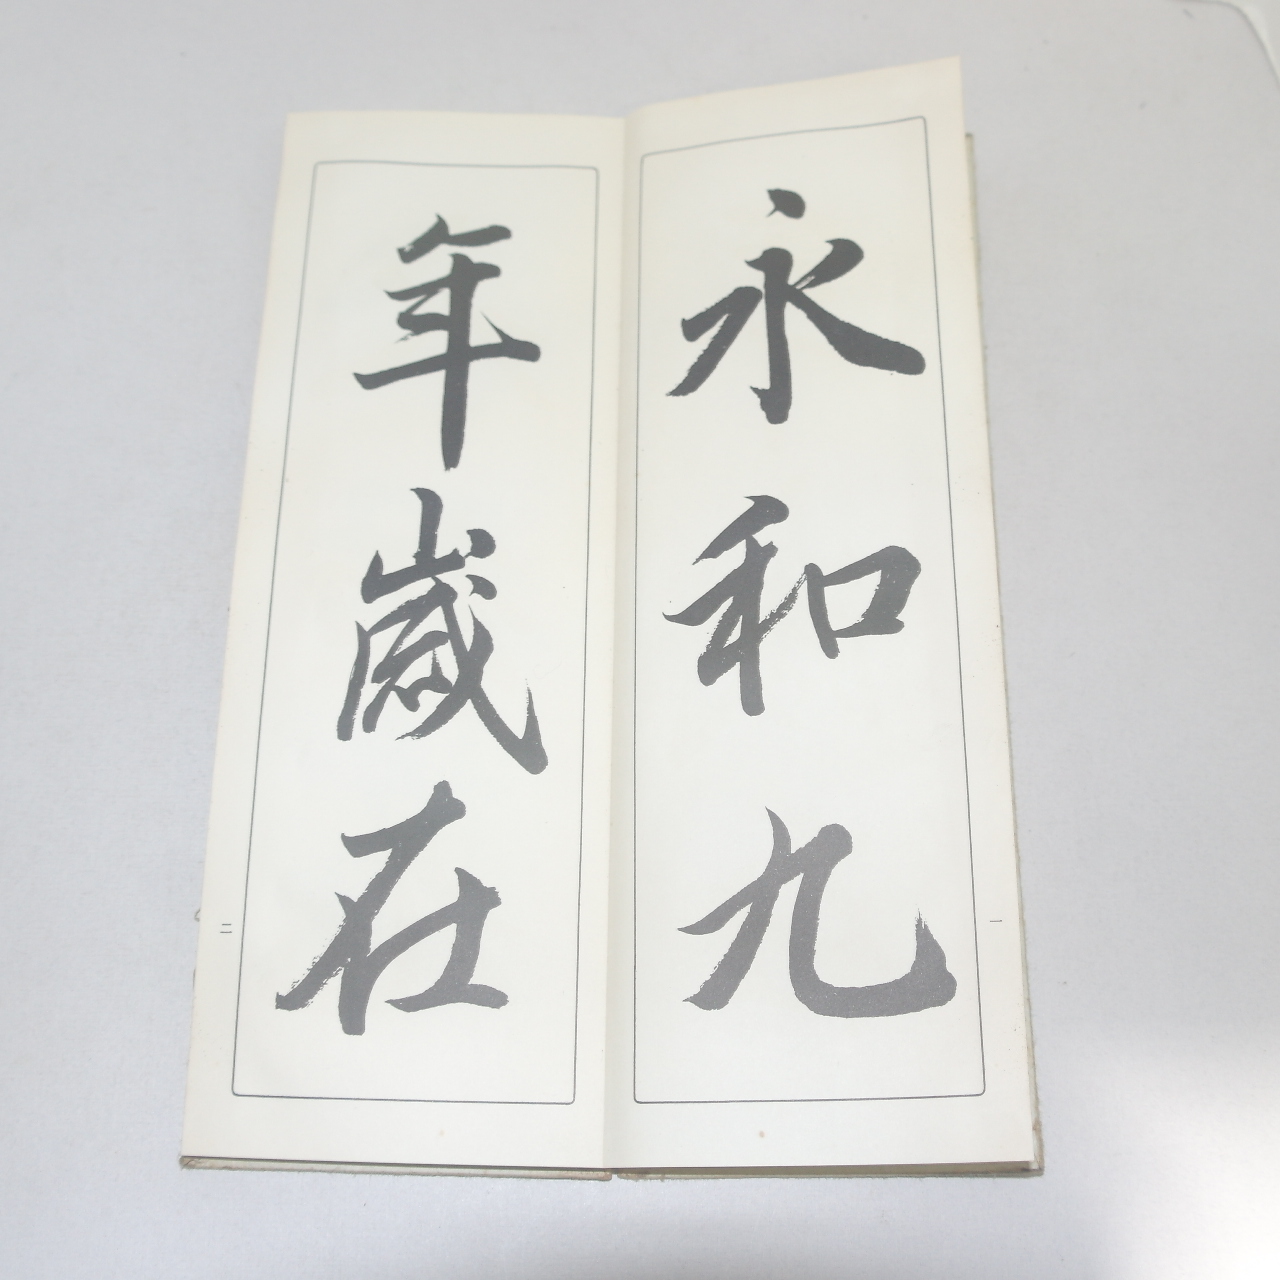 永和九
一
年歳在
二